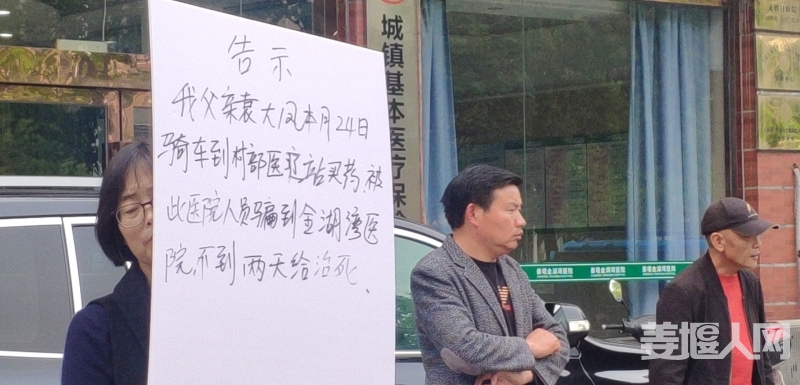 告示
我父亲袁大凤本月24日
骑车到村部医疗站买药,被
此医院人员骗到金湖湾医
院,不到两天给治死.
城镇基本医疗保险
泰州金湖湾医院
姜堰人网